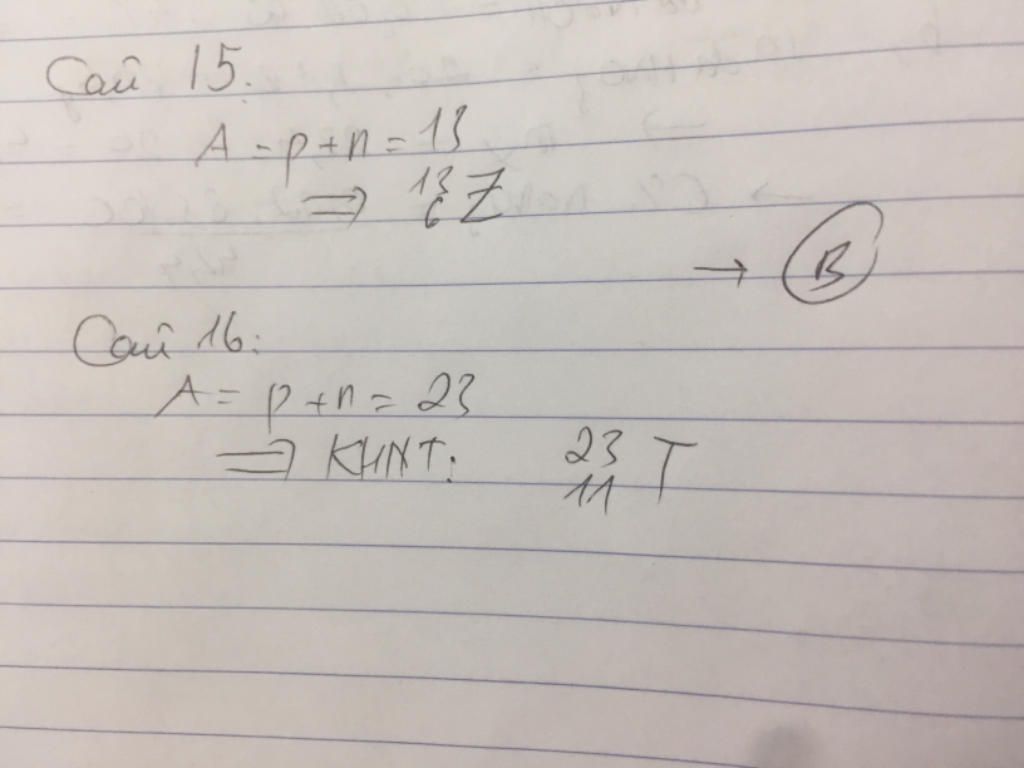 Câu 15.
A = p + n = 13
⇒ ¹³₆Z
→ B
Câu 16:
A = p + n = 23
⇒ KHNT: ²³₁₁T